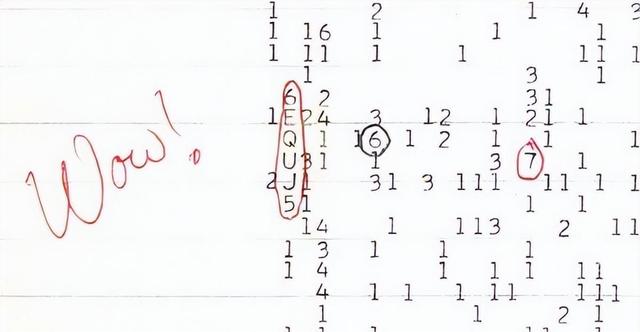 Wow!
1 2 1 4 3
1 16 1 1 1
1 11 1 1 11 1
1 3 1
6 2 31
1 E24 3 12 1 21 1
Q 1 16 1 2 1 1 1
U31 1 3 7 1
2 J1 31 3 111 11 1 1
51 1 1
14 1 113 2 11
1 3 1 1 1
1 4 1 1 1 11
4 1 1 1 11 111
1 1 2 1